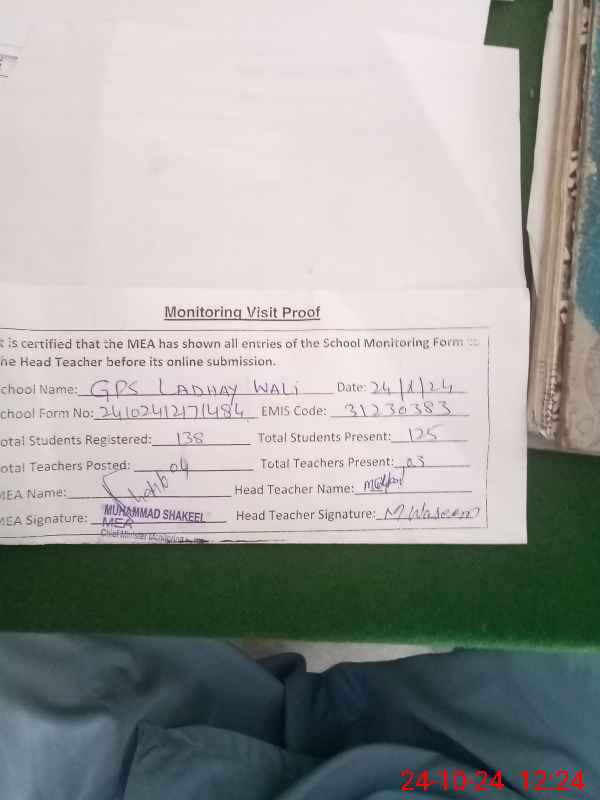 Monitoring Visit Proof
t is certified that the MEA has shown all entries of the School Monitoring Form to
he Head Teacher before its online submission.
chool Name: GPS LADHAY WALI Date: 24/1/24
chool Form No: 24102412171484 EMIS Code: 31230383
otal Students Registered: 138 Total Students Present: 125
otal Teachers Posted: 04 Total Teachers Present: 03
MEA Name: Head Teacher Name:
MEA Signature: MUHAMMAD SHAKEEL Head Teacher Signature: M Waseem
MEA
Chief Minister Monitoring
24-10-24 12:24